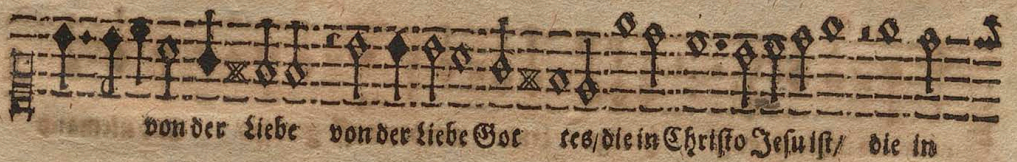 von der Liebe von der Liebe Got tes/die in Christo Jesu ist/ die in